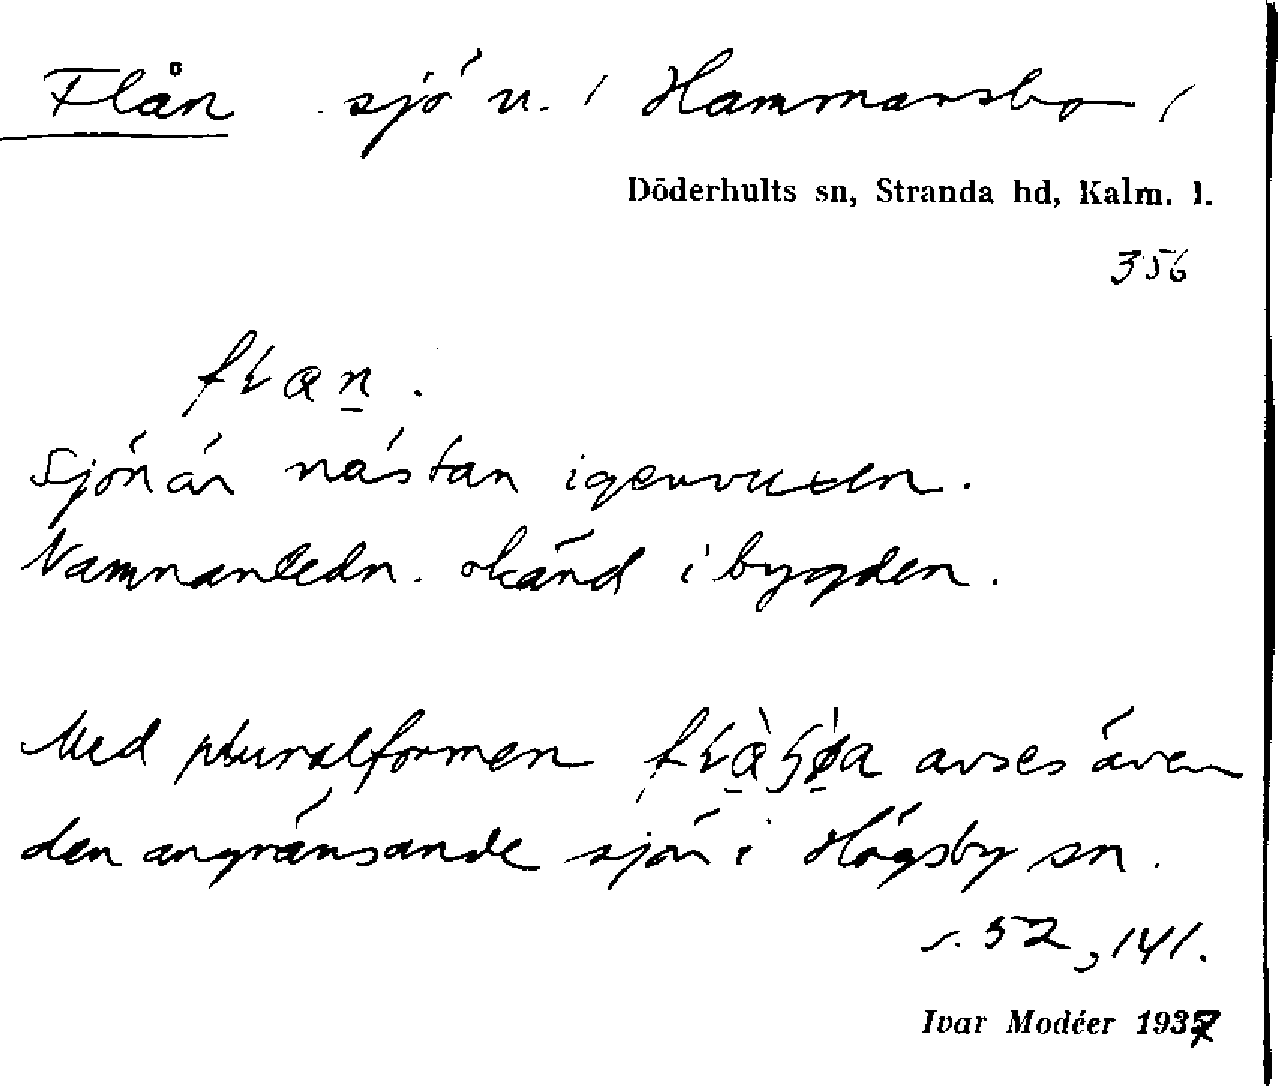 Flån sjö n. / Hammarsbo /
Döderhults sn, Stranda hd, Kalm. l.
356
Sjön är nästan igenvuxen.
Namnanledn. okänd i bygden.
Med pluralformen avses även
den angränsande sjön i Högsby sn.
s. 52, 141.
Ivar Modéer 1937